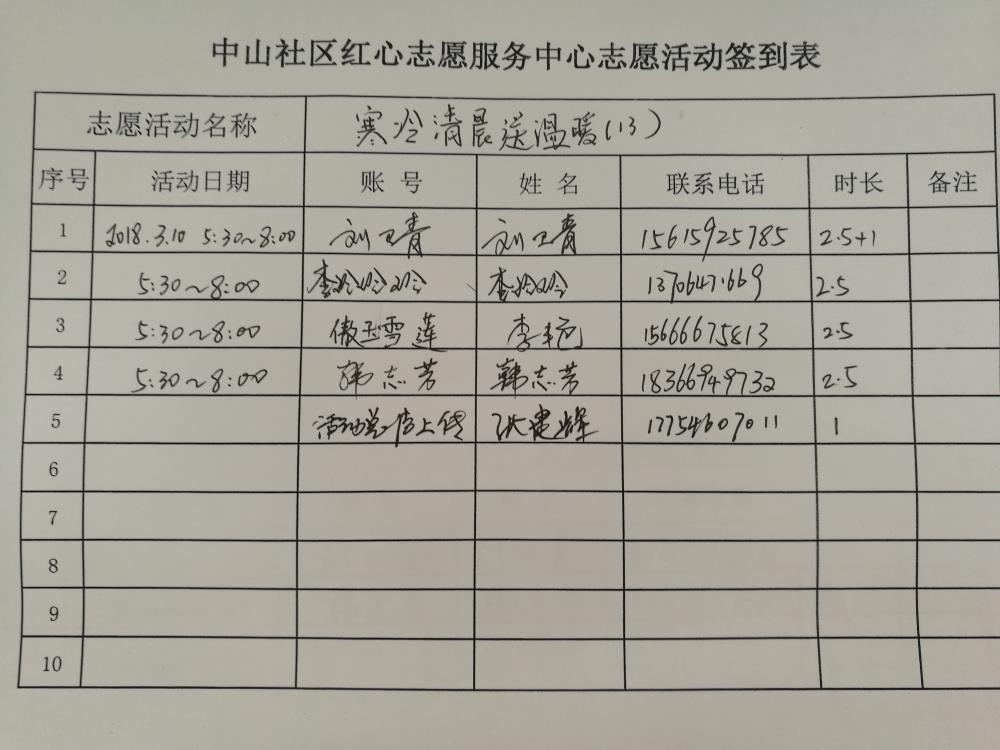 中山社区红心志愿服务中心志愿活动签到表
志愿活动名称 寒冷清晨送温暖(13)
序号 活动日期 账号 姓名 联系电话 时长 备注
1 2018.3.10 5:30~8:00 刘卫青 刘卫青 15615925785 2.5+1
2 5:30~8:00 李玲玲 2.5
3 5:30~8:00 傲玉雪莲 李艳 15666675813 2.5
4 5:30~8:00 韩志芳 韩志芳 18366949732 2.5
5 活动总结上传 洪建辉 17754607011 1
6
7
8
9
10